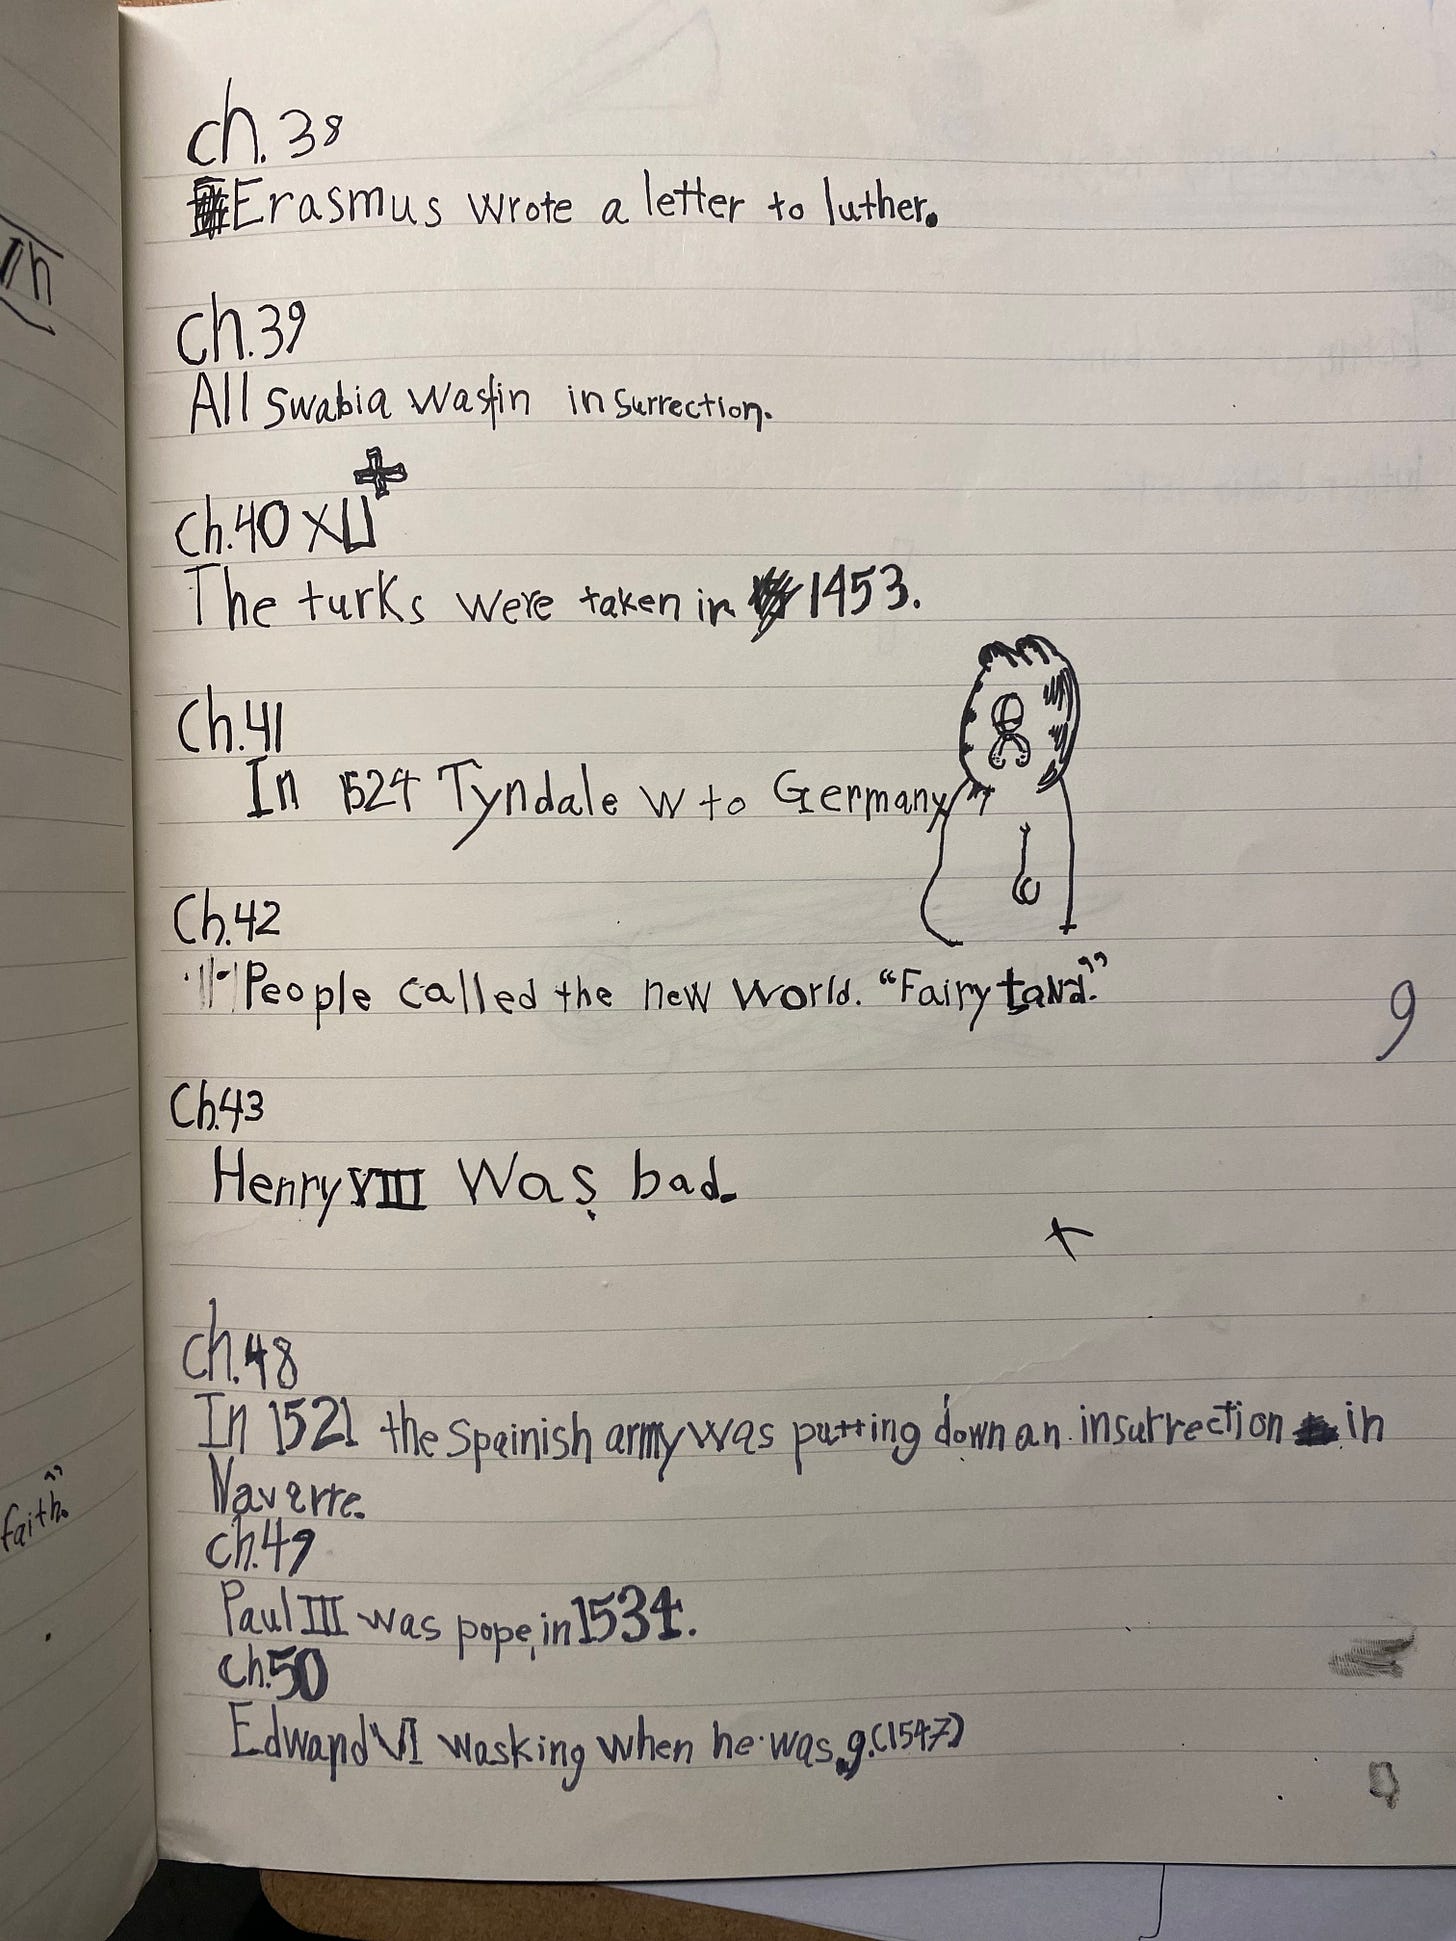 ch. 38
Erasmus wrote a letter to luther.
ch.39
All swabia was in insurrection.
ch.40
The turks were taken in 1453.
Ch.41
In 1524 Tyndale w to Germany
Ch.42
People called the new world. "Fairy tand."
Ch.43
Henry VIII was bad.
ch.48
In 1521 the Spainish army was putting down an insurrection in
Naverre.
ch.49
Paul III was pope, in 1534.
ch.50
Edward VI was king when he was 9.(1547)
9
faith."